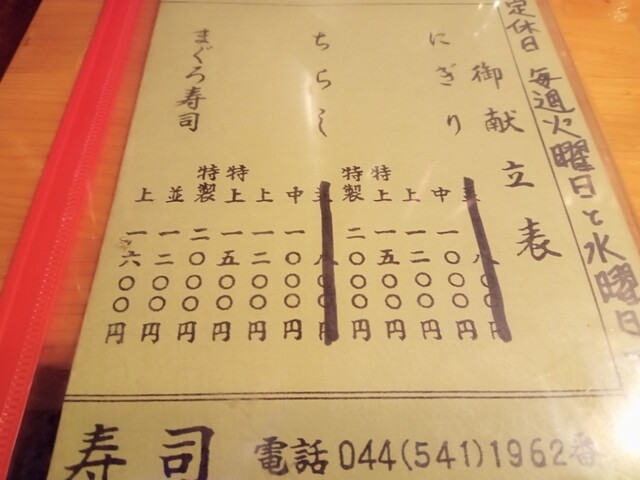 定休日 毎週火曜日と水曜日
御献立表
にぎり
八〇〇円
中 一〇〇〇円
上 一二〇〇円
特上 一五〇〇円
特製 二〇〇〇円
ちらし
中 一〇〇〇円
上 一二〇〇円
特上 一五〇〇円
特製 二〇〇〇円
まぐろ寿司
並 一二〇〇円
上 一六〇〇円
寿司 電話044(541)1962番